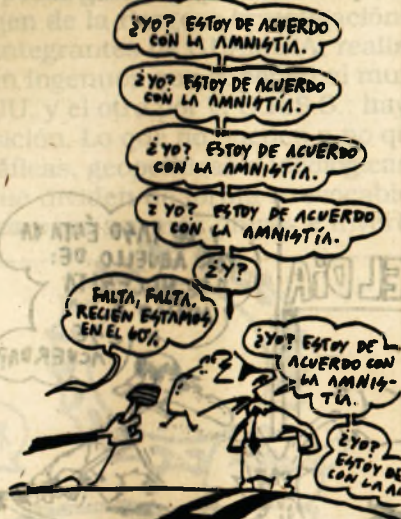 ¿YO? ESTOY DE ACUERDO
CON LA AMNISTÍA.
¿YO? ESTOY DE ACUERDO
CON LA AMNISTÍA.
¿YO? ESTOY DE ACUERDO
CON LA AMNISTÍA.
¿YO? ESTOY DE ACUERDO
CON LA AMNISTÍA.
¿Y?
FALTA, FALTA.
RECIEN ESTAMOS
EN EL 60%
¿YO? ESTOY DE
ACUERDO CON
LA AMNIS-
TÍA.
¿YO?
ESTOY DE
CON LA